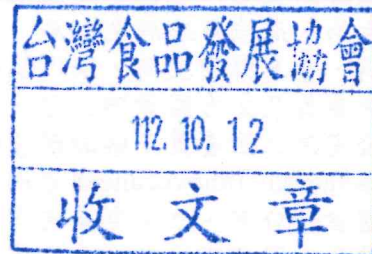 台灣食品發展協會
112. 10. 12
收文章